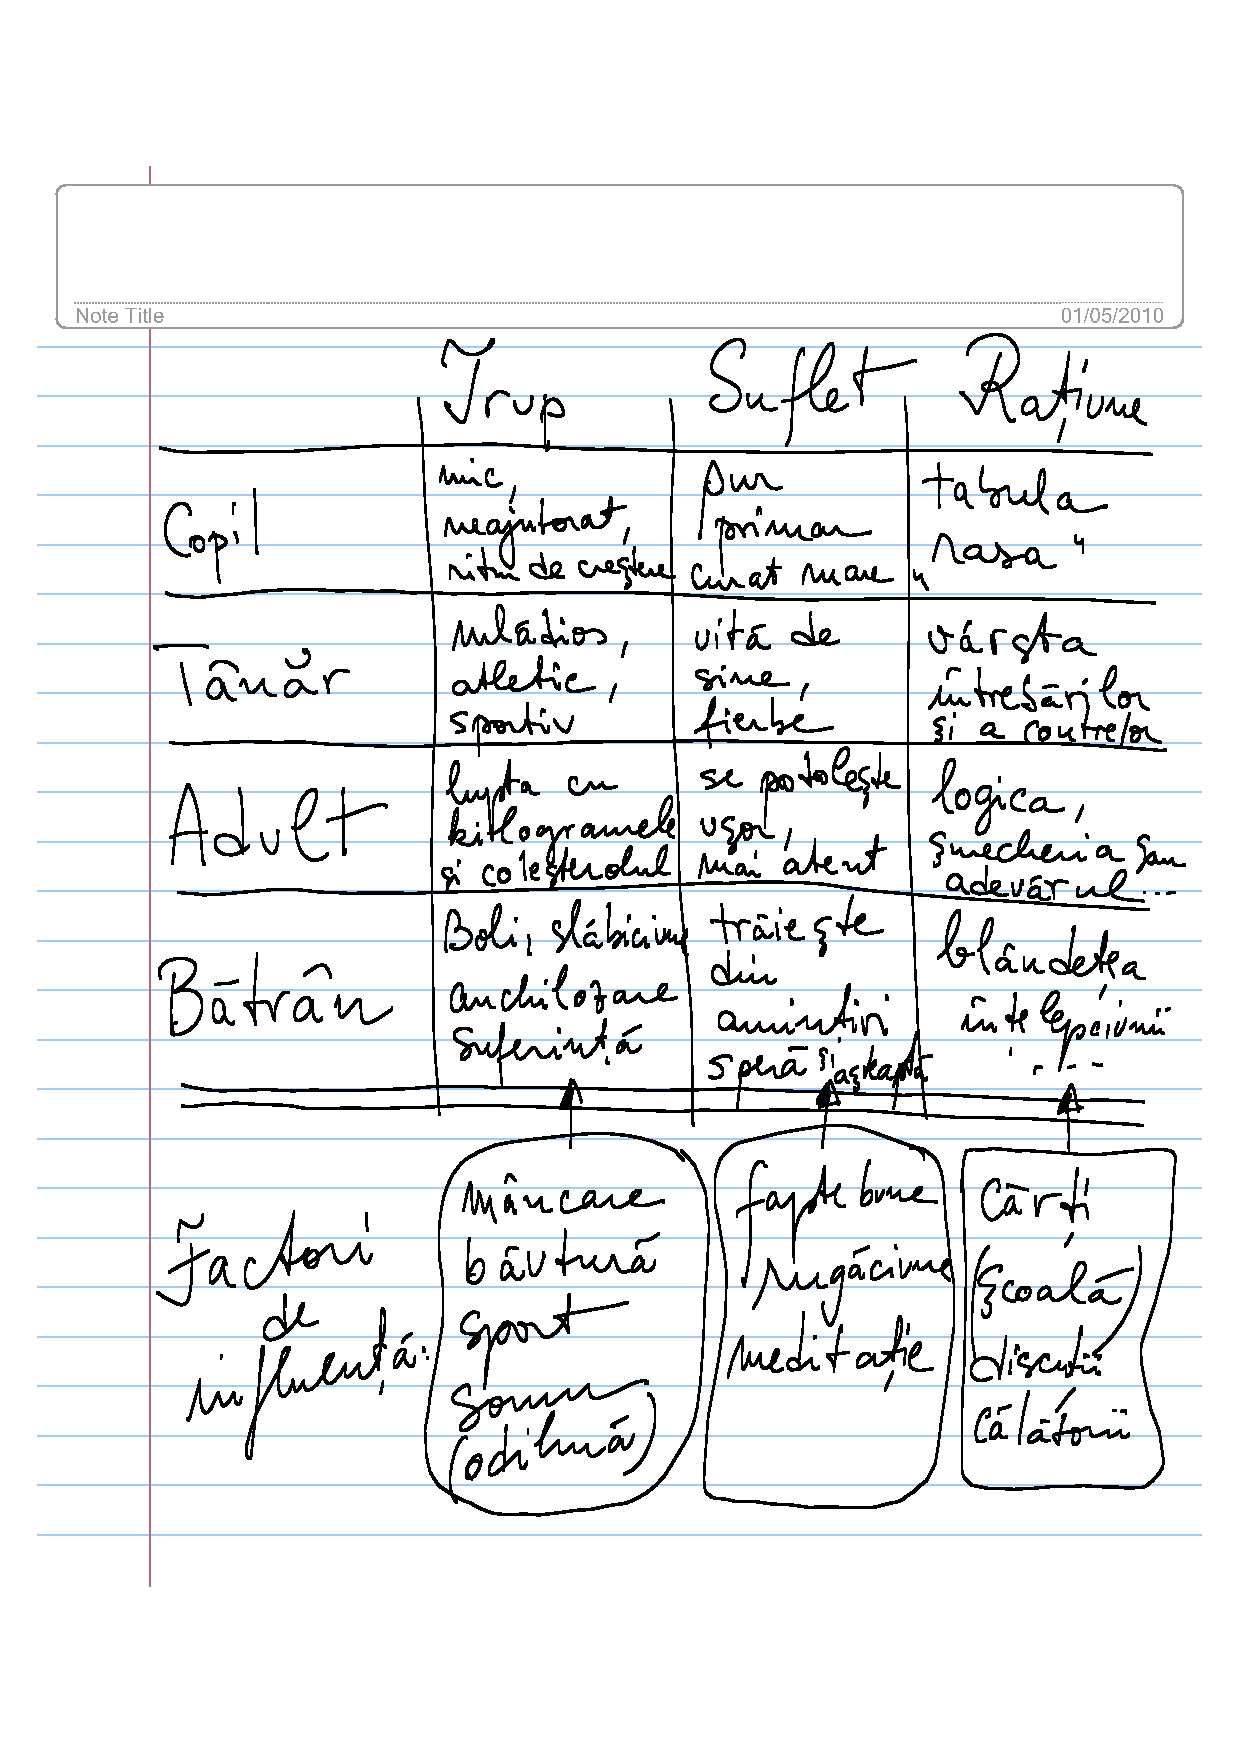 Note Title 01/05/2010
Trup Suflet Rațiune
Copil
mic,
neajutorat,
ritm de creștere
pur
primar
curat mare
„tabula
rasa"
Tânăr
mlădios,
atletic,
sportiv
uită de
sine,
fierbe
vârsta
întrebărilor
și a contrelor
Adult
lupta cu
kilogramele
și colesterolul
se potolește
ușor,
mai atent
logica,
șmecheria sau
adevărul...
Bătrân
Boli, slăbiciune
anchilozare
suferință
trăiește
din
amintiri
speră și așteaptă
blândețea
înțelepciunii
....
Factori
de
influență:
mâncare
băutură
sport
somn
(odihnă)
fapte bune
rugăciune
meditație
Cărți
(școală)
discuții
călătorii